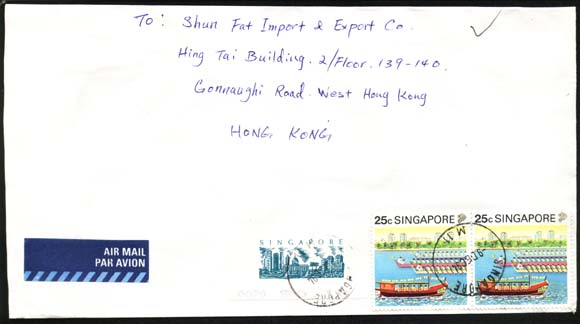 To: Shun Fat Import & Export Co.
Hing Tai Building. 2/Floor. 139-140.
Gonnaughi Road. West Hong Kong
HONG KONG
25c SINGAPORE
25c SINGAPORE
AIR MAIL
PAR AVION
SINGAPORE
SINGAPORE